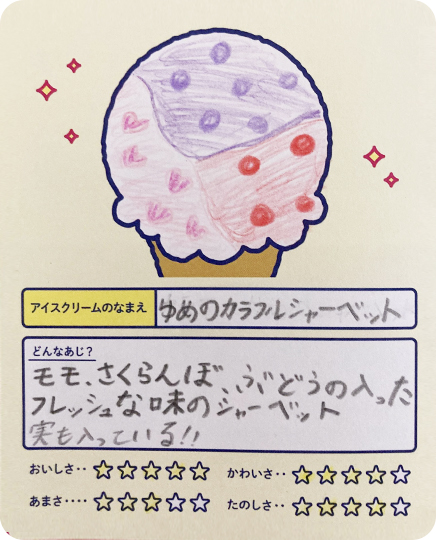 アイスクリームのなまえ ゆめのカラフルシャーベット
どんなあじ？
モモ、さくらんぼ、ぶどうの入った
フレッシュな味のシャーベット
実も入っている!!
おいしさ‥ ☆☆☆☆☆ かわいさ‥ ☆☆☆☆☆
あまさ‥‥ ☆☆☆☆☆ たのしさ‥ ☆☆☆☆☆